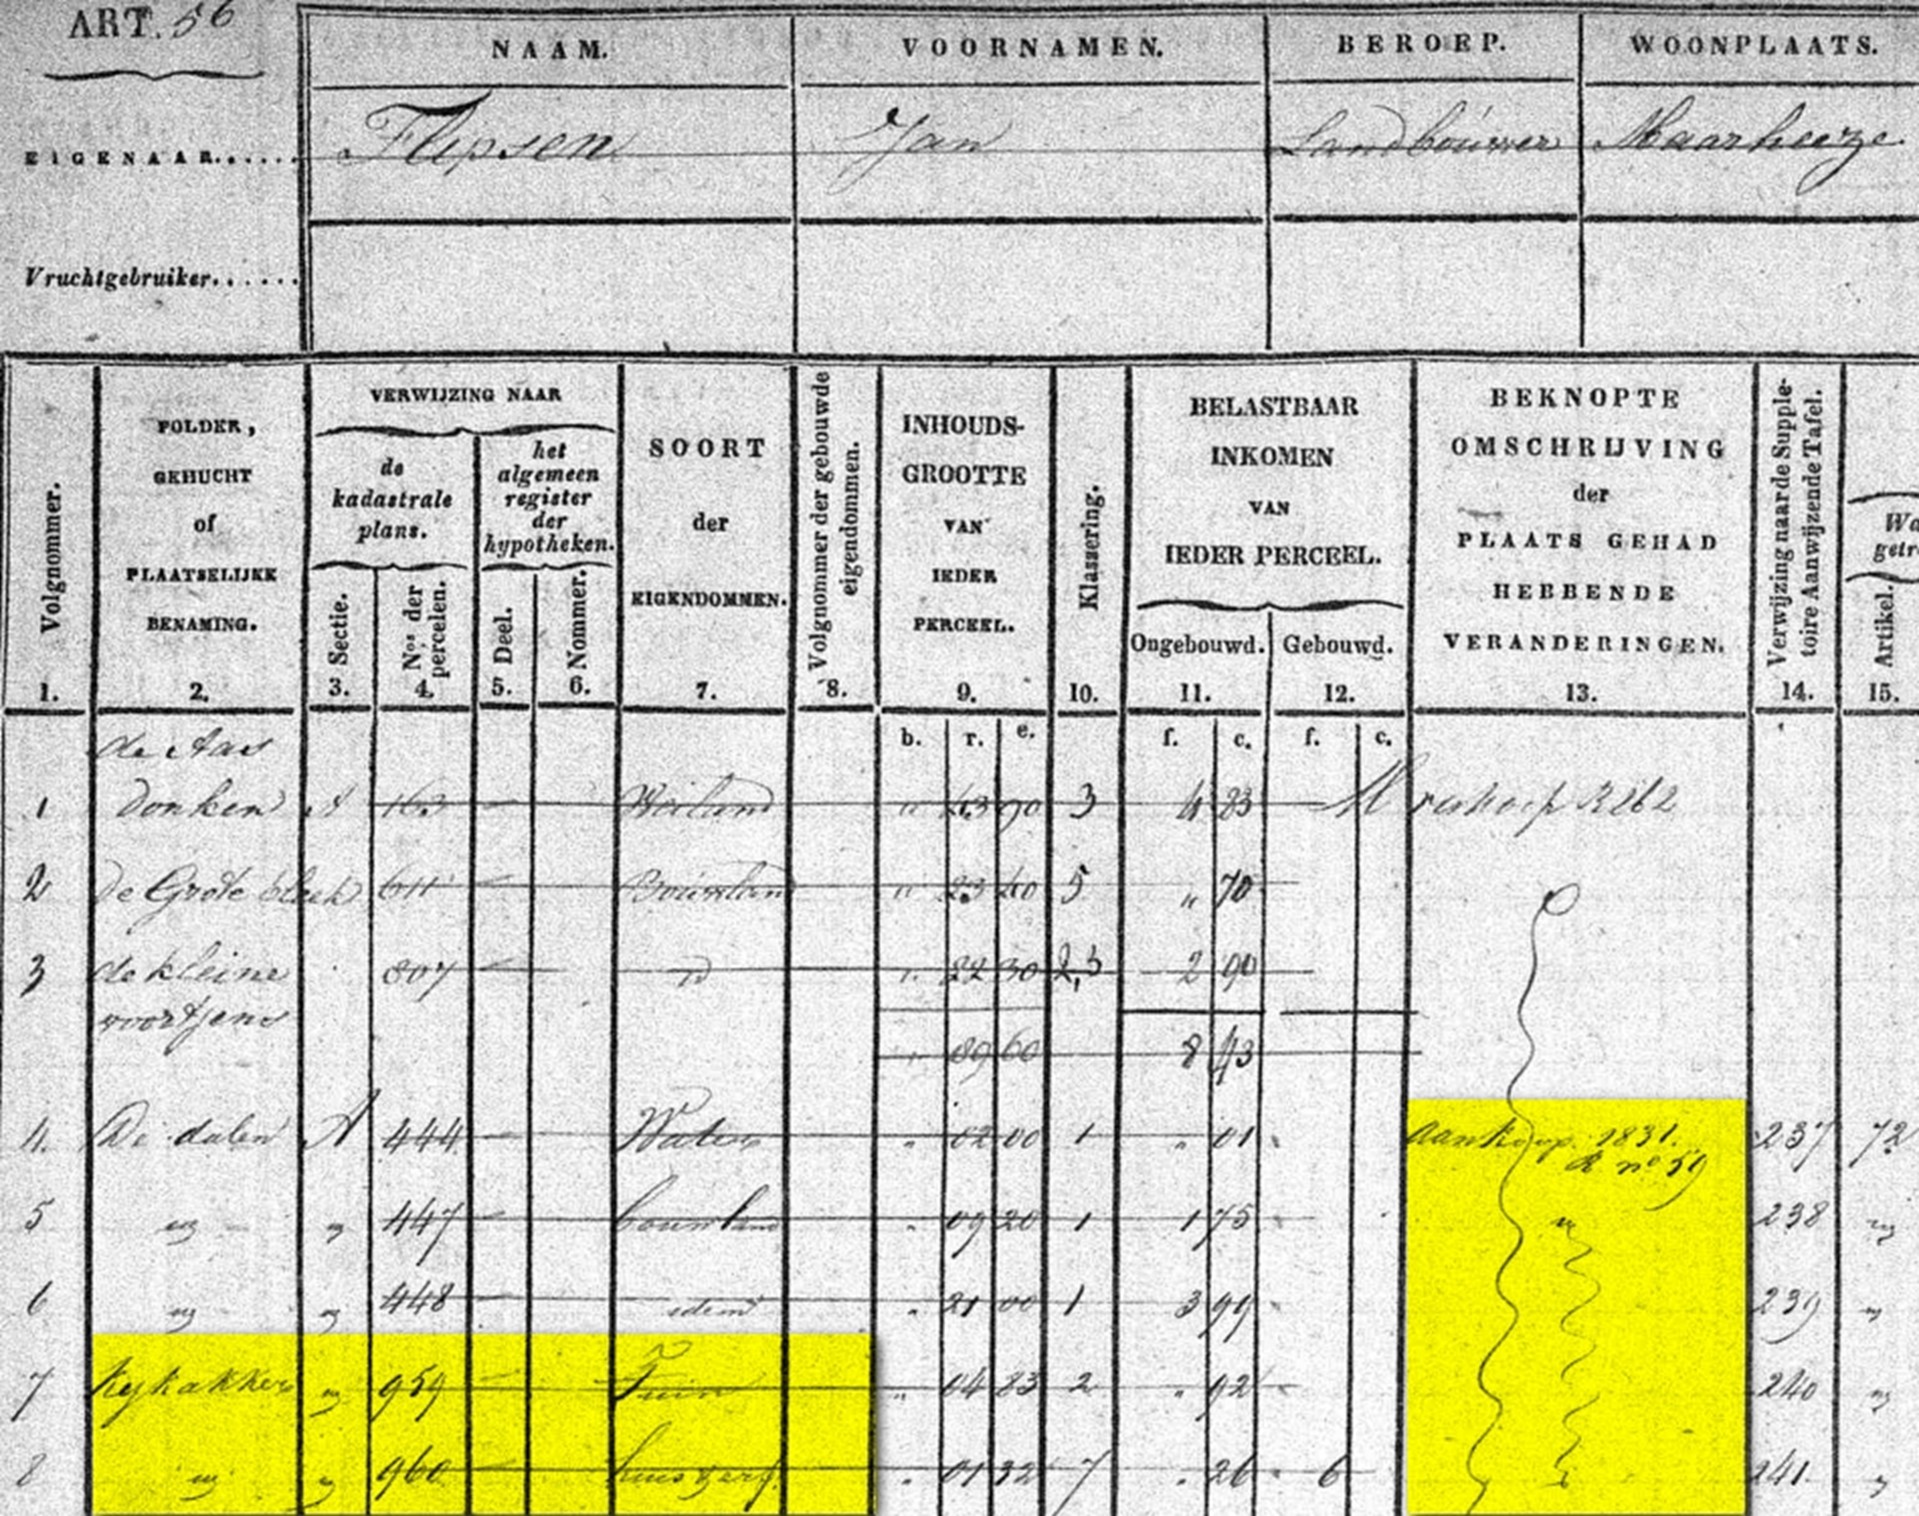 ART. 56
NAAM. VOORNAMEN. BEROEP. WOONPLAATS.
EIGENAAR...... Flipsen Jan Landbouwer Maarheeze
Vruchtgebruiker......
Volgnommer. 1.
POLDER, GEHUCHT of PLAATSELIJKE BENAMING. 2.
VERWIJZING NAAR
de kadastrale plans.
Sectie. 3.
Nos. der percelen. 4.
het algemeen register der hypotheken.
Deel. 5.
Nommer. 6.
SOORT der EIGENDOMMEN. 7.
Volgnommer der gebouwde eigendommen. 8.
INHOUDS-GROOTTE VAN IEDER PERCEEL. 9.
Klassering. 10.
BELASTBAAR INKOMEN VAN IEDER PERCEEL.
Ongebouwd. 11.
Gebouwd. 12.
BEKNOPTE OMSCHRIJVING der PLAATS GEHAD HEBBENDE VERANDERINGEN. 13.
Verwijzing naar de Suppletoire Aanwijzende Tafel. 14.
Artikel. 15.
b. r. e. f. c. f. c.
de
1 donken A Weiland " 43 90 3 4 83 262
2 de Grote 611 Bouwland " 23 40 5 " 70
3 de kleine 807 " 22 30 2,3 2 90
" 89 60 8 43
4. De dalen A 444 Water " 02 00 1 " 01 Aankoop 1831. 237 72
no 59
5 " " 447 bouwland " 09 20 1 1 75 " 238 "
6 " " 448 idem " 21 00 1 3 99 239 "
7 Kykakker " 959 Tuin " 04 83 2 " 92 240 "
8 " " 960 huis & erf " 01 32 7 " 26 6 241 "